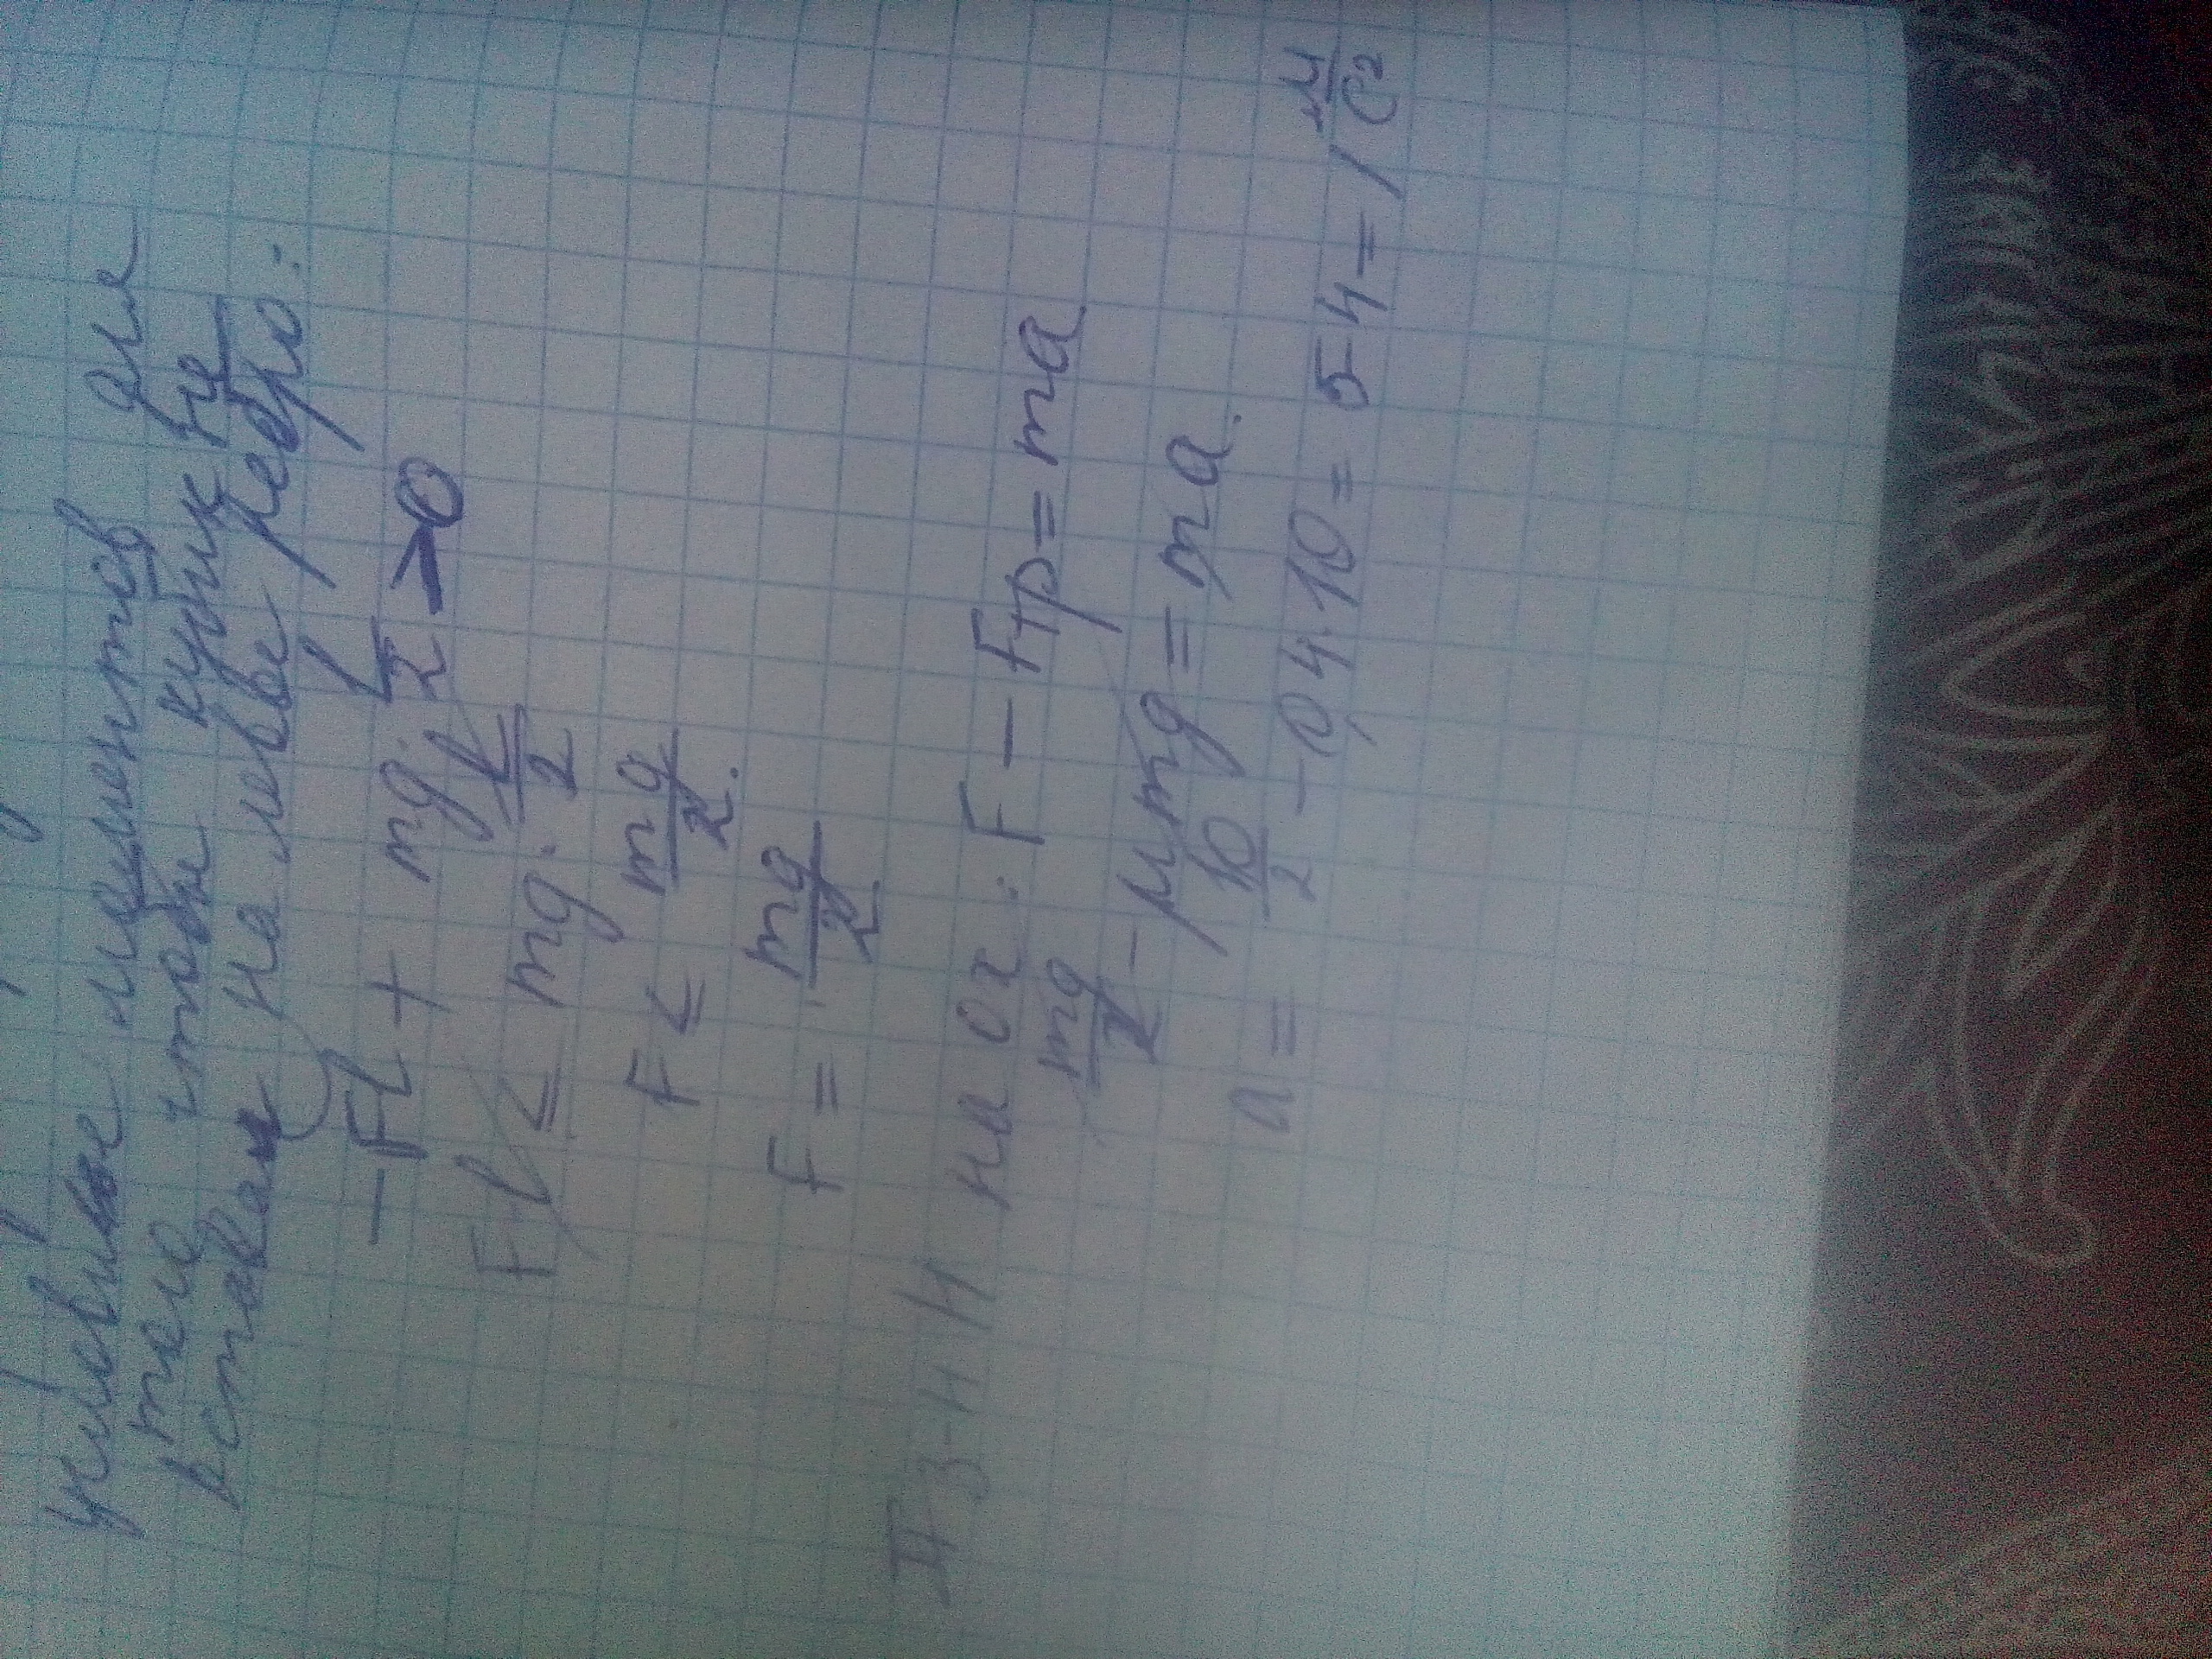 условие моментов для
того чтобы кубик не
вставал на левое ребро:
-Fl + mg·l/2 > 0
Fl ≤ mg·l/2
F ≤ mg/2.
F = mg/2
II З-Н Н на Ox: F - Fтр = ma
mg/2 - μmg = ma.
a = 10/2 - 0,4·10 = 5-4 = 1 м/с²